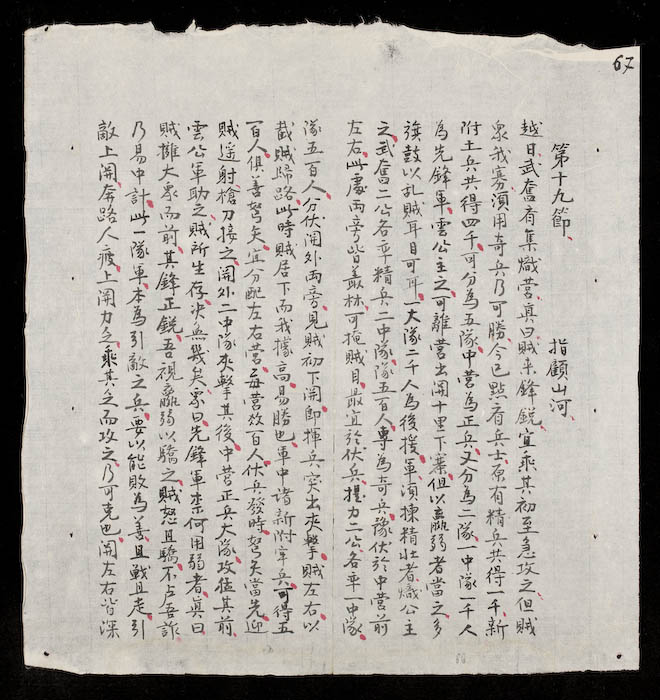 67
第十九節　指顧山河
越日武奮看集熾營真曰賊來鋒鋭宜乘其初至急攻之但賊
衆我寡須用奇兵乃可勝今已點看兵士原有精兵共得一千新
附土兵共得四千可分為五隊中營為正兵又分為二隊一中隊一千人
為先鋒軍雲公主之可離營出開十里下寨但以羸弱者當之多
旗鼓以亂賊耳目可耳一大隊二千人為後援軍須揀精壯者熾公主
之武奮二公各率精兵二中隊隊五百人專為奇兵豫伏於中營前
左右此處両旁皆叢林可掩賊目最宜於伏兵力二公各率一中隊
隊五百人分伏開外両旁見賊初下開即揮兵突出夾擊賊左右以
截賊歸路此時賊居下而我據高易勝也軍中諸新附兵可得五
百人俱善弩矢宜分配左右營每營百人伏兵發時弩矢當先迎
賊遥射槍刀接之開外二中隊夾擊其後中營正兵大隊攻猛其前
雲公軍助之賊所生存決無幾矣衆曰先鋒軍柰何用弱者真曰
賊擁大衆而前其鋒正鋭吾視羸弱以驕之賊怒且驕不虞吾詐
乃易中計此一隊軍本為引敵之兵要以能敗為善且戰且走引
敵上開奔路人疲上開力乏乘其乏而攻之乃可克也開左右皆深